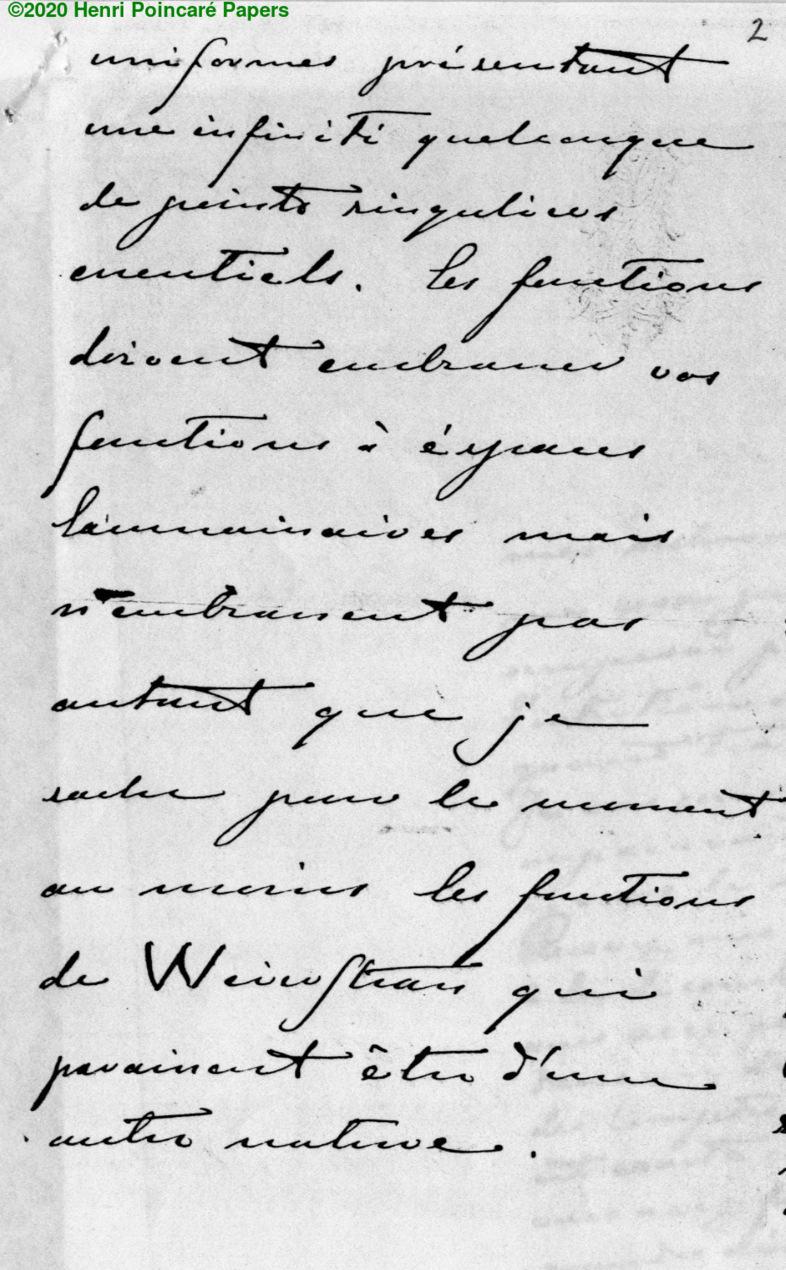 ©2020 Henri Poincaré Papers
2
uniformes présentant
une infinité quelconque
de points singuliers
essentiels. Ces fonctions
doivent embrasser vos
fonctions à espaces
lacunaires mais
n'embrassent pas
autant que je
sache pour le moment
au moins les fonctions
de Weierstrass qui
paraissent être d'une
autre nature.